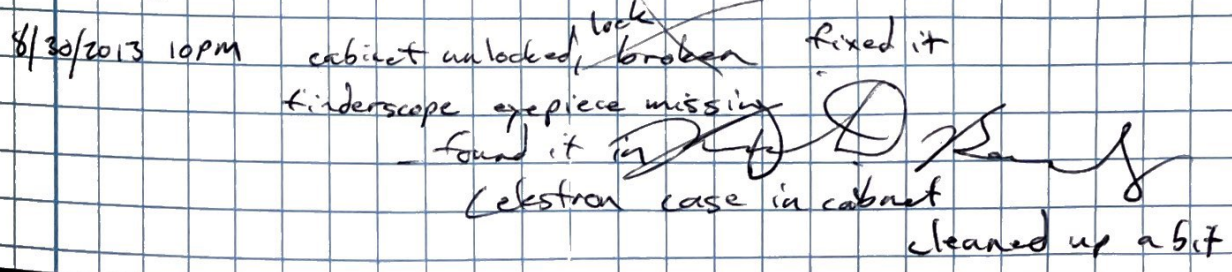 8/30/2013 10PM cabinet unlocked, lock broken fixed it
finderscope eyepiece missing
- found it in
Celestron case in cabnet
cleaned up a bit